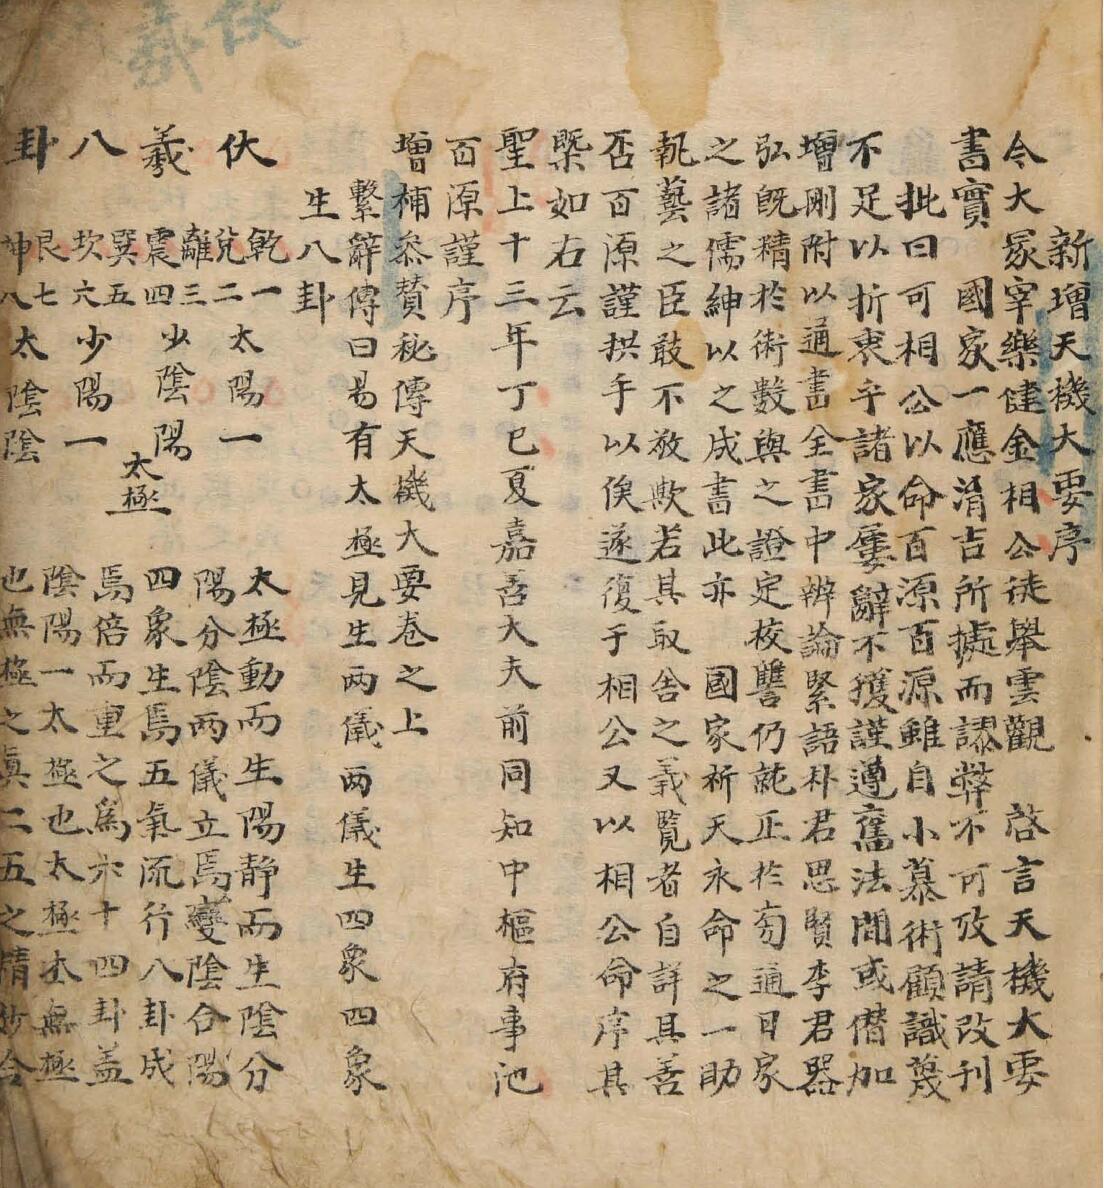 新增天機大要序
今大冢宰樂健金相公徒舉雲觀 啓言天機大要
書實 國家一應涓吉所據而謬弊不可攷請改刊
批曰可相公以命百源百源雖自小慕術顧識蔑
不足以折衷乎諸家屢辭不獲謹遵舊法間或僭加
增刪附以通書全書中辨論緊語朴君思賢李君器
弘旣精於術數與之證定校讐仍就正於旁通日家
之諸儒紳以之成書此亦 國家祈天永命之一助
執藝之臣敢不敬歟若其取舍之義覽者自詳其善
否百源謹拱手以俟遂復于相公又以相公命序其
槩如右云
聖上十三年丁巳夏嘉善大夫前同知中樞府事池
百源謹序
增補參贊秘傳天機大要卷之上
繫辭傳曰易有太極見生兩儀兩儀生四象四象
生八卦
伏羲八卦
乾一
兌二
太陽一
離三
震四
少陰陽
巽五
坎六
少陽一
艮七
坤八
太陰陰
太極
太極動而生陽静而生陰分
陽分陰兩儀立焉變陰合陽
四象生焉五氣流行八卦成
焉倍而重之爲六十四卦盖
陰陽一太極也太極本無極
也無極之眞二五之精妙合
伏羲